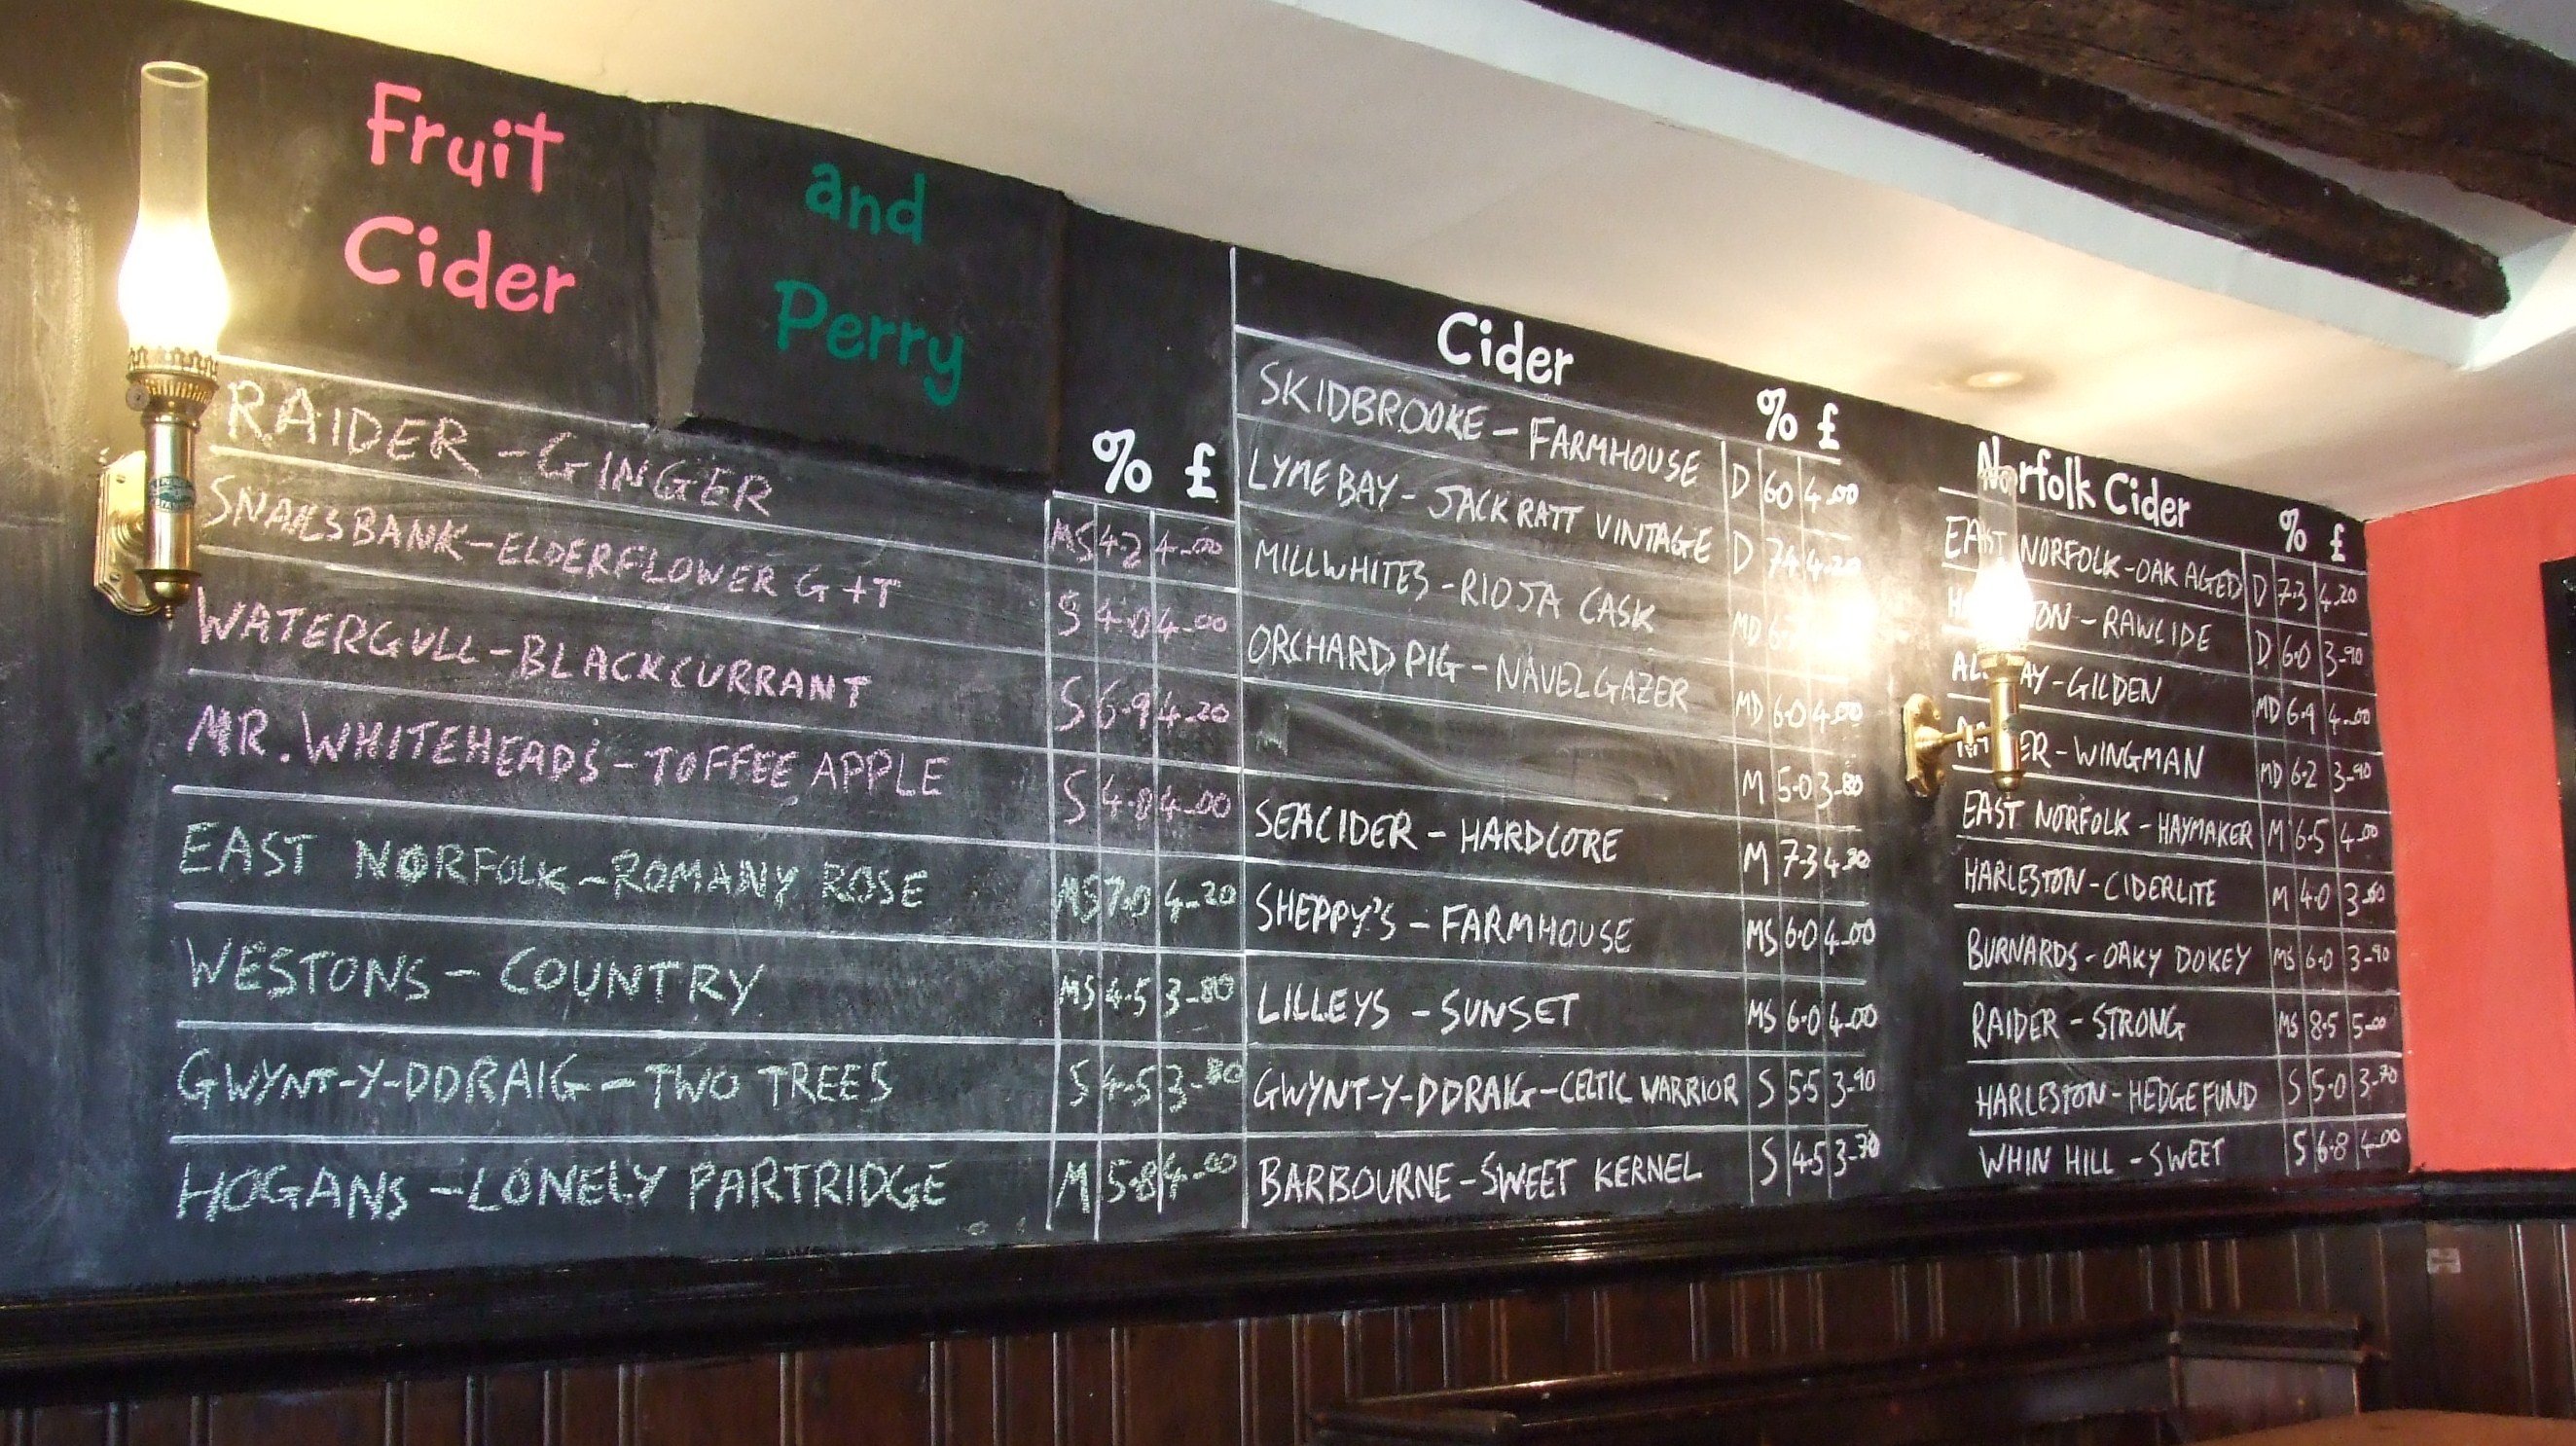 Fruit
Cider
and
Perry
% £
RAIDER - GINGER MS 4.2 4-00
SNAILSBANK - ELDERFLOWER G+T S 4.0 4-00
WATERGULL - BLACKCURRANT S 6.9 4-20
MR. WHITEHEADS - TOFFEE APPLE S 4.8 4-00
EAST NORFOLK - ROMANY ROSE MS 7.0 4-20
WESTONS - COUNTRY MS 4.5 3-80
GWYNT-Y-DDRAIG - TWO TREES S 4.5 3-80
HOGANS - LONELY PARTRIDGE M 5.8 4-00
Cider
% £
SKIDBROOKE - FARMHOUSE D 60 4-00
LYME BAY - JACK RATT VINTAGE D 74 4-20
MILLWHITES - RIOJA CASK MD
ORCHARD PIG - NAVELGAZER MD 6.0 4-00
M 5.0 3-80
SEACIDER - HARDCORE M 7.3 4-30
SHEPPY'S - FARMHOUSE MS 6.0 4-00
LILLEYS - SUNSET MS 6.0 4-00
GWYNT-Y-DDRAIG - CELTIC WARRIOR S 5.5 3-90
BARBOURNE - SWEET KERNEL S 4.5 3-70
Norfolk Cider
% £
EAST NORFOLK - OAK AGED D 7.3 4-20
- RAWLIDE D 6.0 3-90
- GILDEN MD 6.9 4-00
- WINGMAN MD 6.2 3-90
EAST NORFOLK - HAYMAKER M 6.5 4-00
HARLESTON - CIDERLITE M 4.0 3-60
BURNARDS - OAKY DOKEY MS 6.0 3-90
RAIDER - STRONG MS 8.5 5-00
HARLESTON - HEDGEFUND S 5.0 3-70
WHIN HILL - SWEET S 6.8 4-00